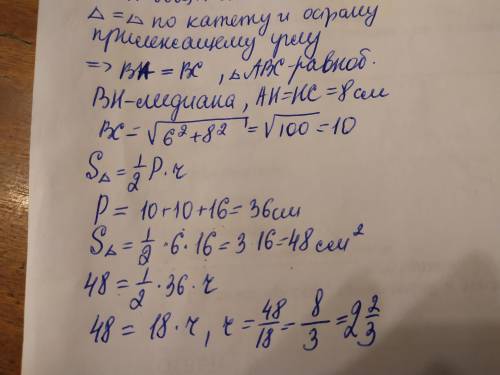 △ = △ по катету и острому
прилежащему углу
=> BA = BC , △ABC-равноб.
BH-медиана, AH=HC=8см
BC=√6²+8² =√100=10
S△=1/2 P·r
P = 10+10+16=36см
S△=1/2·6·16=3·16=48см²
48=1/2·36·r
48= 18·r, r=48/18=8/3=2 2/3